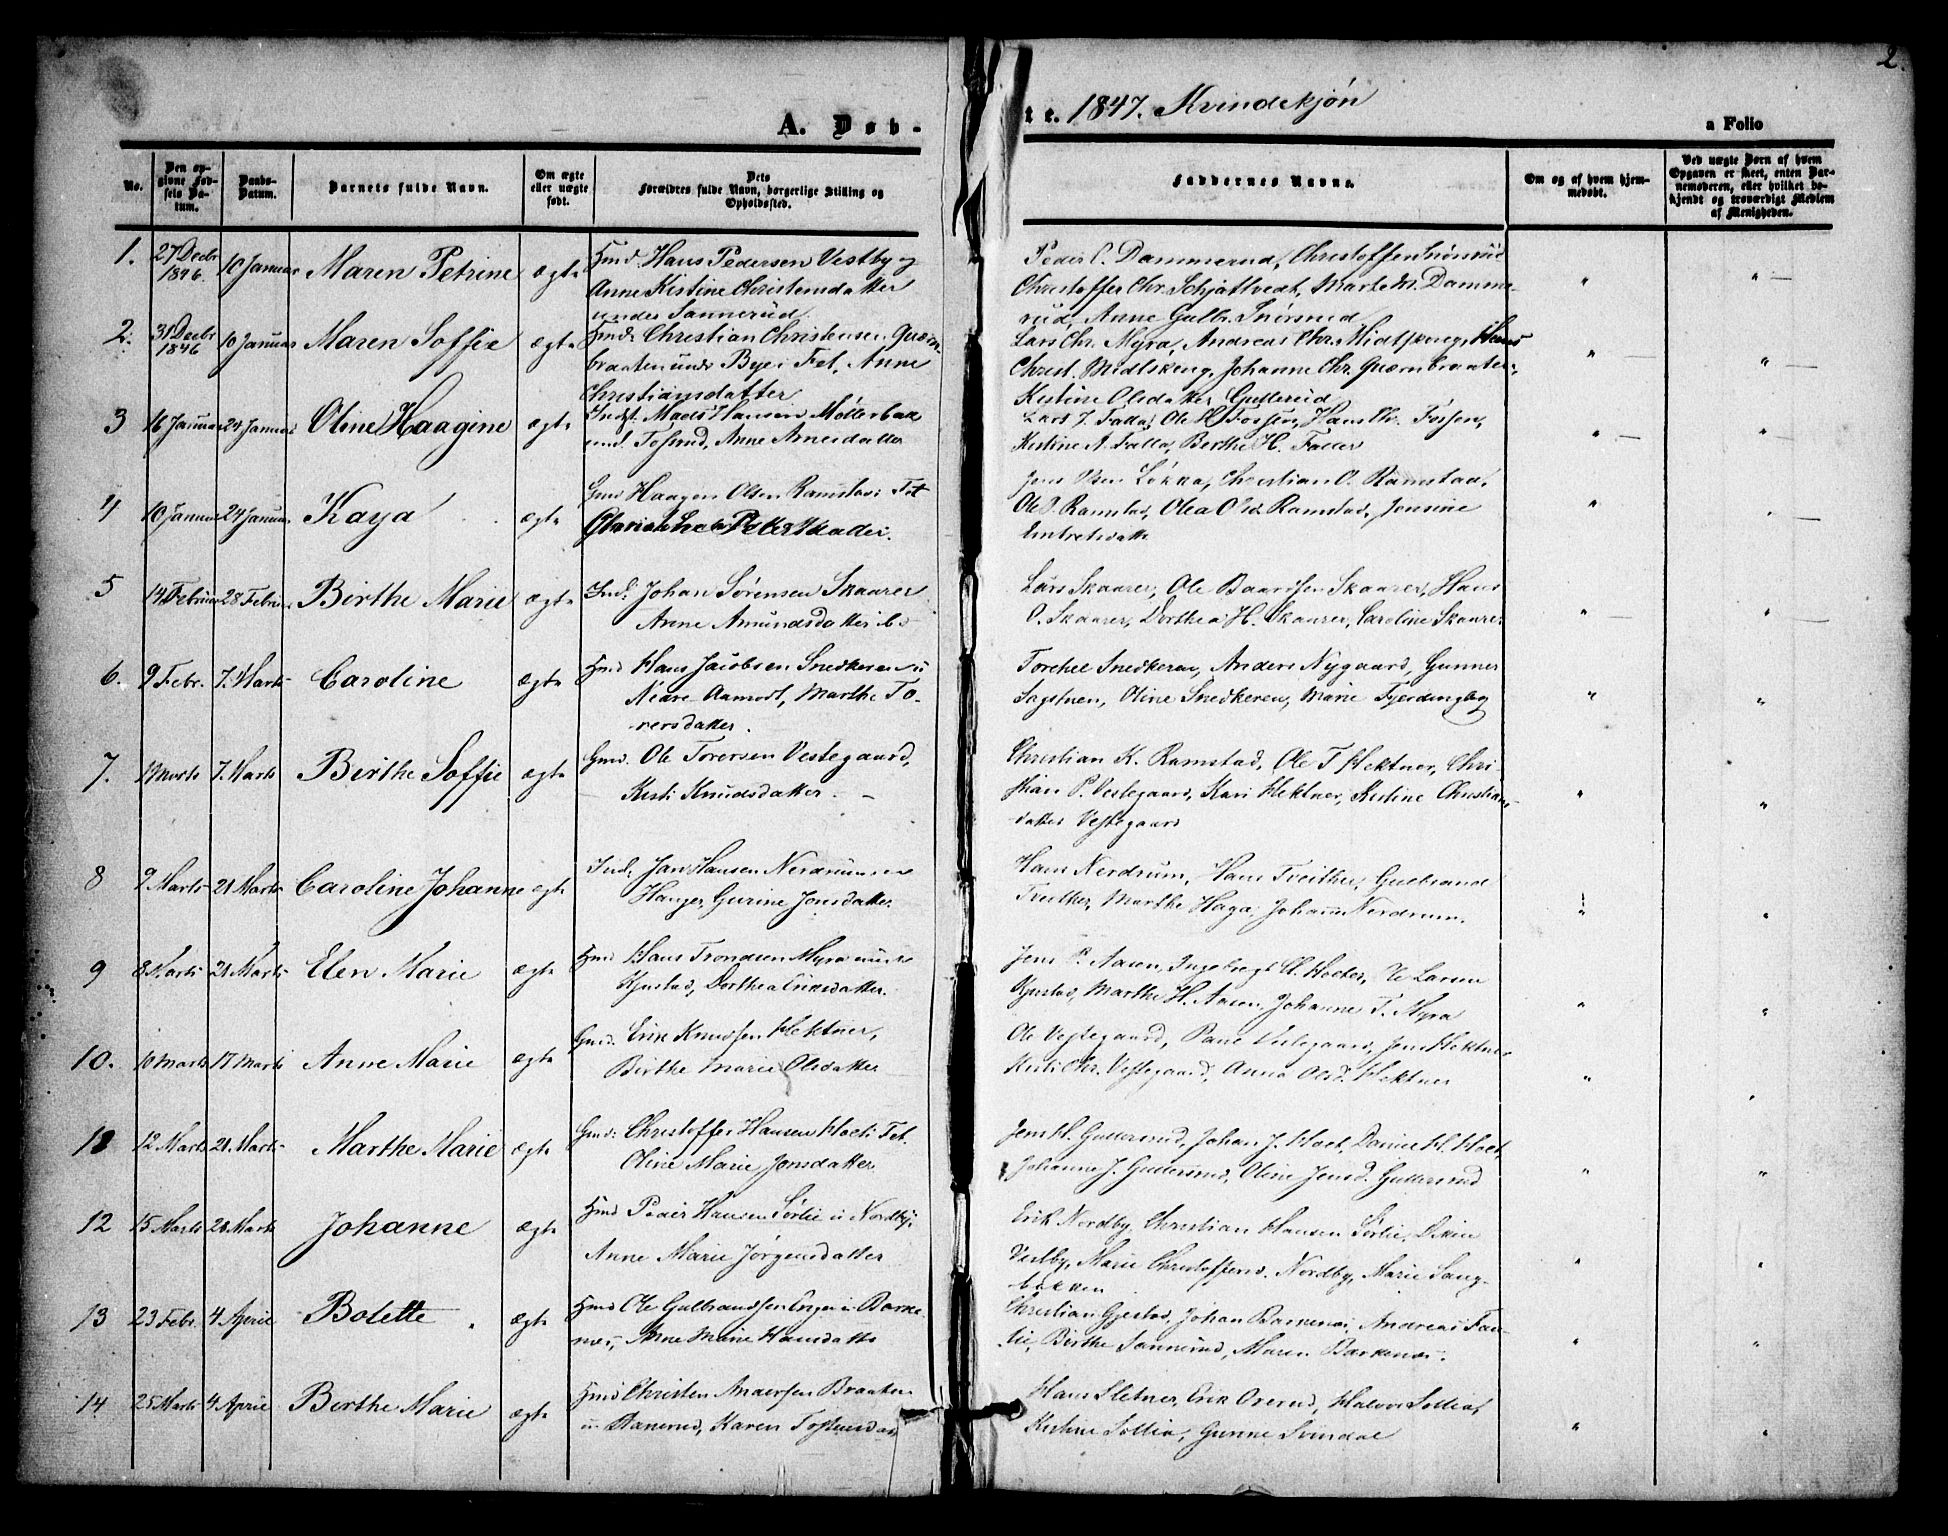 2.
A. Døb-
te. 1847. Kvindekjøn
a Folio
No.
Den op-
givne Fød-
sels Da-
tum.
Daabs-
Datum.
Barnets fulde Navn.
Om ægte
eller uægte
født.
Dets
Forældres fulde Navn, borgerlige Stilling og
Opholdssted.
Faddernes Navne.
Om og af hvem hjem-
medøbt.
Ved uægte Børn af hvem
Opgaven er skeet, enten Bar-
nemoderen, eller hvilket be-
kjendt og troværdigt Medlem
af Menigheden.
1. 27 Decbr 1846. 10 Januar Maren Petrine ægte
Hmd. Hans Pedersen Vestby og
Anne Kistine Christensdatter
under Sannerud.
Peder C. Dammerud, Christoffer
Christoffer Chr. Schjattvedt, Marte M. Damme-
rud, Anne Gulbr.
2. 31 Decbr 1846 10 Januar Maren Soffie ægte
Hmd. Christian Christensen Quærn-
braaten und Bye i Fet, Anne
Christiansdatter
Lars Chr. Myra, Andreas Chr. Midtskeng, Hans
Christ. Midtskeng, Johanne Chr. Quærnbraaten,
Kistine Olsdatter Gullerud
3 16 Januar 24 Januar Oline Haagine ægte
Indst. Mads Hansen Møllerbak
und. Tosrud, Anne Arnesdatter
Lars J. Falla, Ole H. Fossen, Hans Th. Fossen,
Kistine A. Falla, Berthe H. Faller
4 10 Januar 24 Januar Kaya ægte
Gmd Haagen Olsen Ramstad i Fet
Petersdatter.
Jens Olsen Løkka, Christian O. Ramstad,
Ole P. Ramstad, Olea Olsd. Ramstad, Jensine
5 14 Februar 28 Februar Birthe Marie ægte
Ind. Johan Sørensen Skaarer
Anne Amundsdatter
Lars Skaarer, Ole Baardsen Skaarer, Hans
O. Skaarer, Dorthea H. Skaarer, Caroline Skaarer
6. 9 Febr. 7. Marts Caroline ægte
Hmd Hans Jacobsen Snedkeren u
Nedre Aamodt, Marthe To-
rersdatter.
Torchel Snedkeren, Anders Nygaard, Gunner
Sagstuen, Oline Snedkeren, Marie Fjerdingby
7. 1 Marts 7. Marts Birthe Soffie ægte
Gmd. Ole Torersen Vestegaard,
Kisti Knudsdatter. —
Christian K. Ramstad, Ole T. Hektner, Chri-
stian P. Vestegaard, Kari Hektner, Kistine Christians-
datter Vestegaard
8 9 Marts 21 Marts Caroline Johanne ægte
Ind. Jan Hansen Nerdrum
Hanger, Gurine Jensdatter.
Hans Nerdrum, Hans Treither, Gulbrand
Treither, Marthe Haga, Johanne Nerdrum.
9 8 Marts 21 Marts Elen Marie ægte
Hmd Hans Trondsen Myra under
Kjustad, Dorthea Eriksdatter.
Jens P. Aasen, Ingebregt H. Hoeter, Ole Larsen
Kjustad, Marthe H. Aasen, Johanne T. Myra
10. 10 Marts 17 Marts Anne Marie ægte
Gmd. Erik Knudsen Hektner,
Birthe Marie Olsdatter
Ole Vestegaard, Paul Vestegaard, Jens Hektner
Kisti Chr. Vestegaard, Anna Olsd. Hektner
11 12 Marts 21 Marts Marthe Marie ægte
Gmd. Christoffer Hansen Hoel i Fet.
Oline Marie Jensdatter.
Jens H. Guttersrud, Johan J. Hoel, Dorine H. Hoel,
Johanne J. Guttersrud, Oline Jensd. Guttersrud
12 15 Marts 28 Marts Johanne ægte
Hmd Peder Hansen Sørlie u Nordby,
Anne Marie Jørgensdatter
Erik Nordby, Christian Hansen Sørlie,
Vestby, Marie Christoffersd. Nordby, Marie Sang-
bakken
13 23 Febr. 4 April Bolette ægte
Hmd Ole Gulbrandsen Enger u Barke-
næs, Anne Marie Hansdatter
Christian Gjestad, Johan Barkenæs, Andreas Fau-
lie, Birthe Sannerud, Maren Barkenæs.
14 25 Marts 4 April Birthe Marie ægte
Hmd Christen Andersen Braaten
u Danerud, Karen
Hans Sletner, Erik Ovrerud, Halvor Sollia,
Kistine Sollia, Gunne Svindal